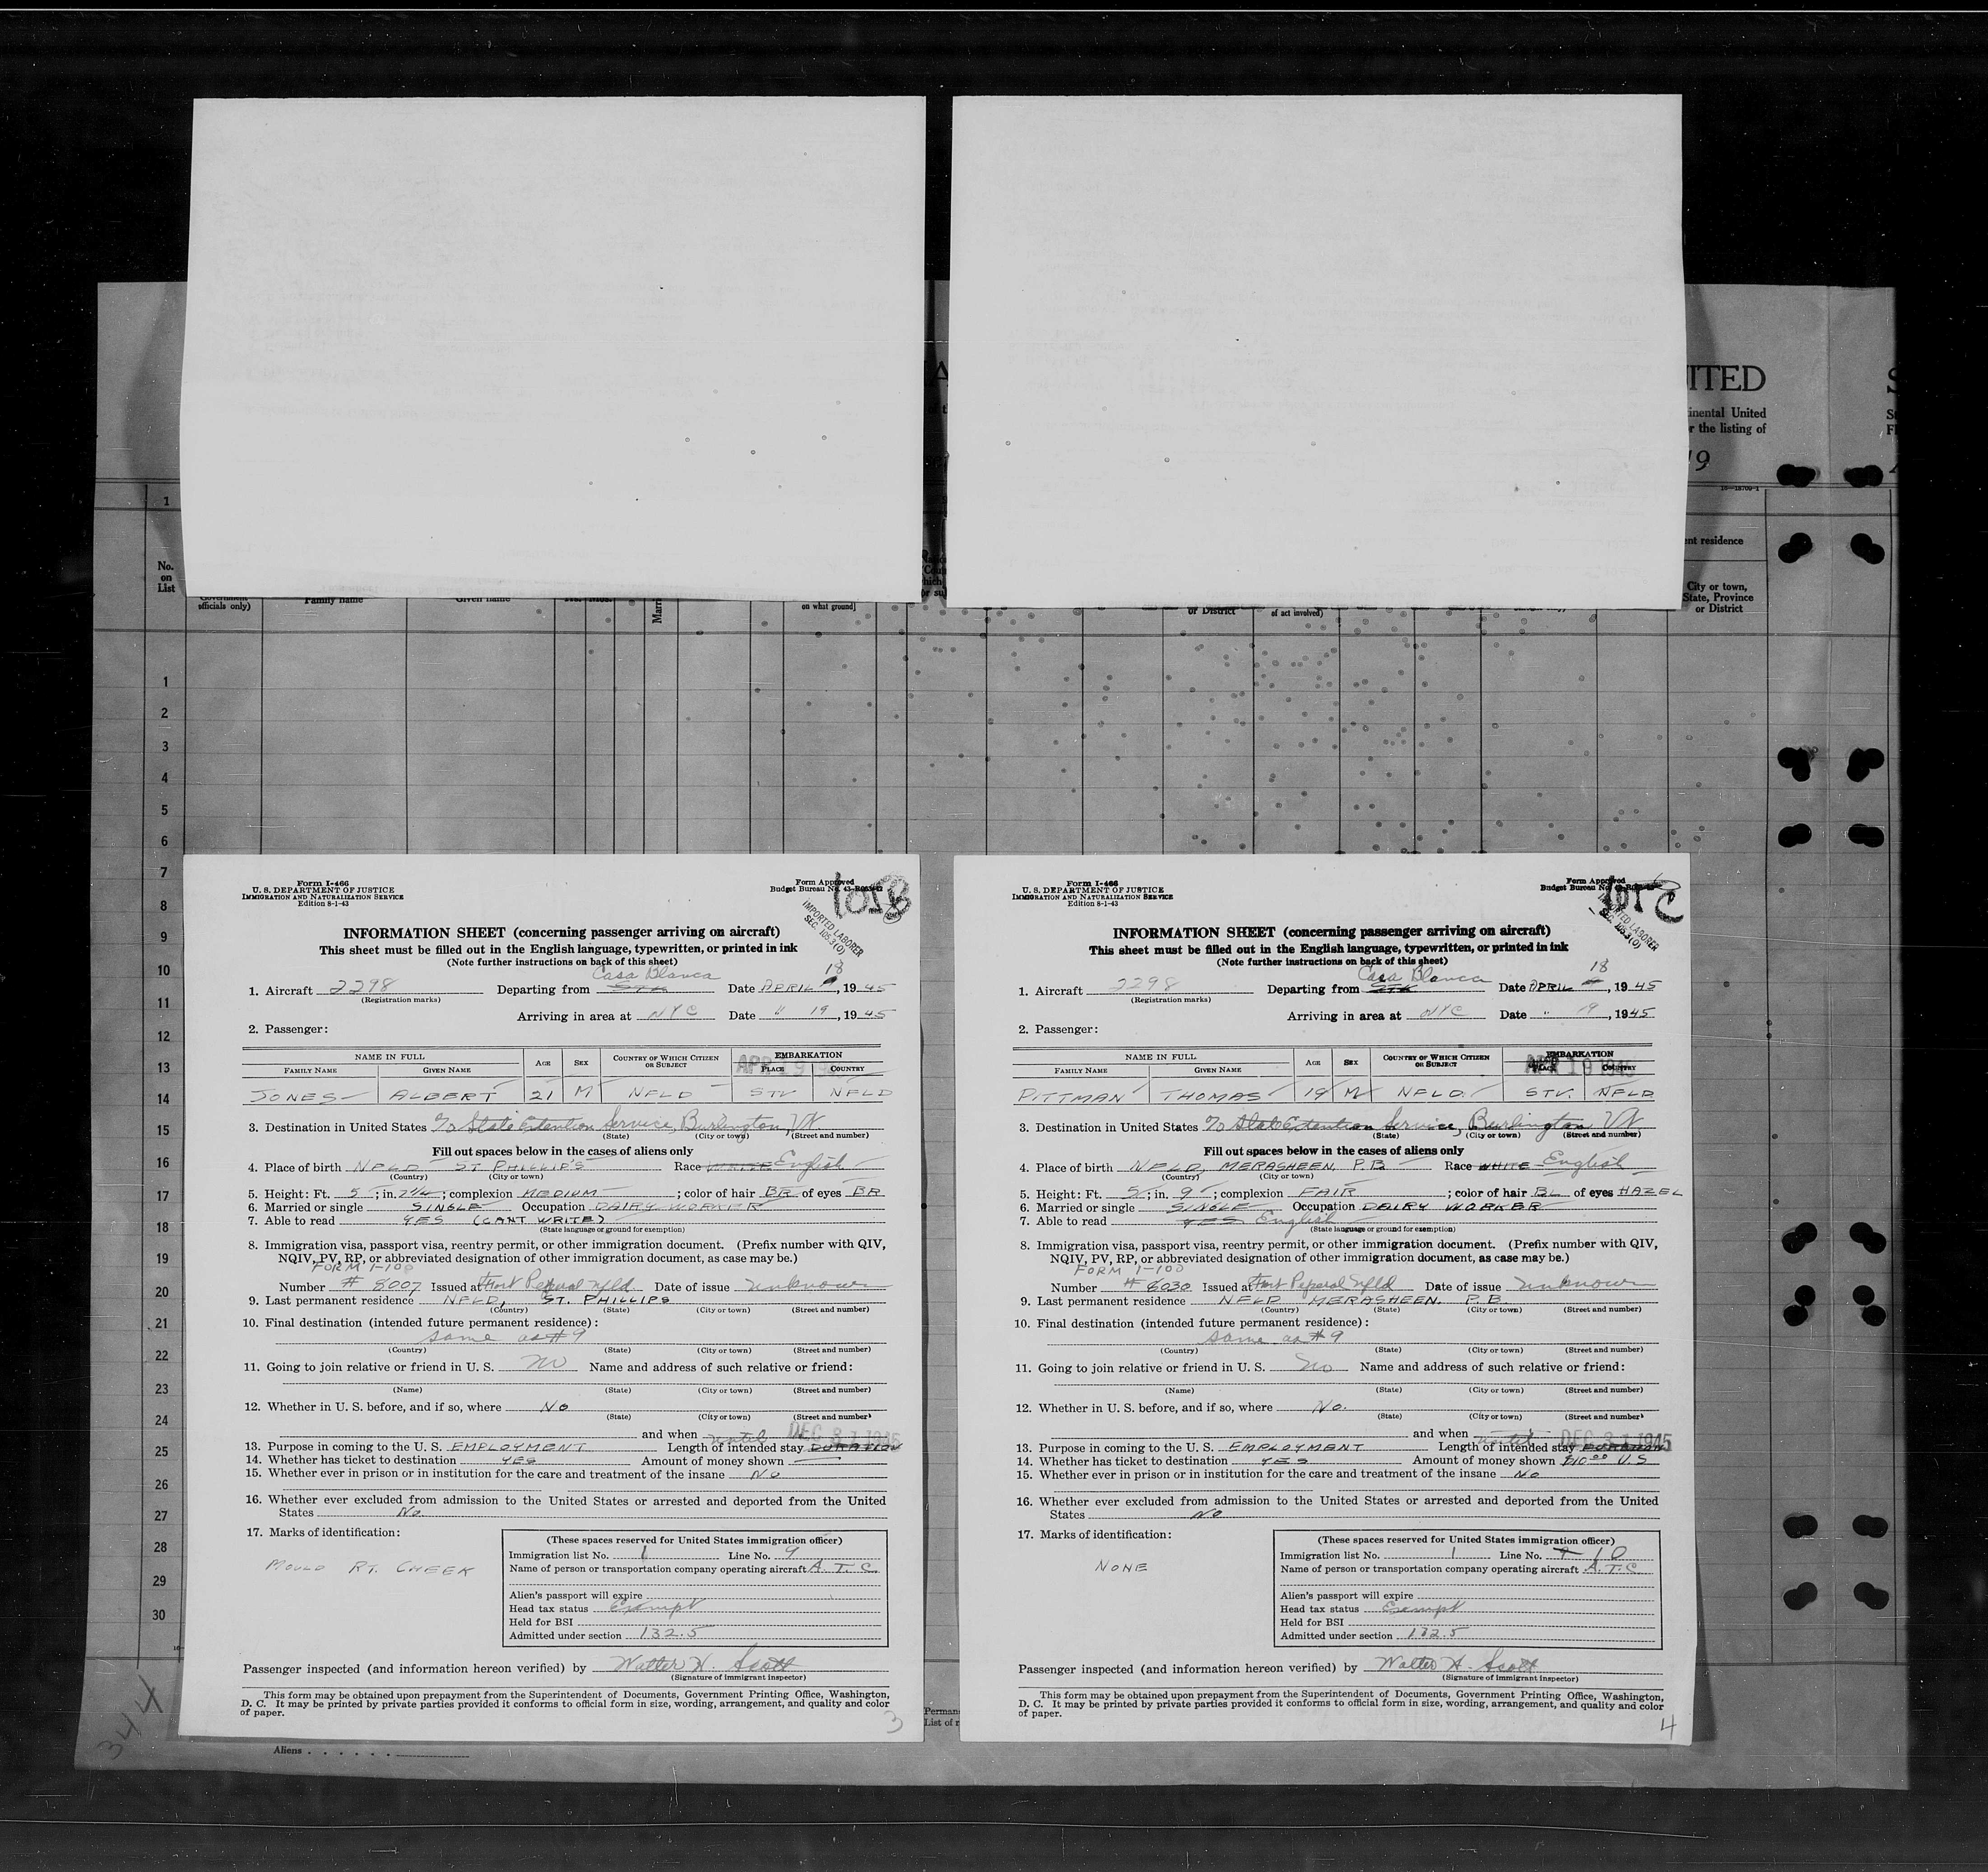 ITED
inental United
r the listing of
19
16—18709-1
1
No.
on
List
officials only)
Family name
Given name
on what ground]
or District
of act involved)
ent residence
City or town,
State, Province
or District
1
2
3
4
5
6
7
8
9
10
11
12
13
14
15
16
17
18
19
20
21
22
23
24
25
26
27
28
29
30
344
Aliens
Form I-466
U. S. DEPARTMENT OF JUSTICE
IMMIGRATION AND NATURALIZATION SERVICE
Edition 8-1-43
Form Approved
Budget Bureau No. 43-R063-42
IMPORTED LABORER
SEC. 105.3(0)
INFORMATION SHEET (concerning passenger arriving on aircraft)
This sheet must be filled out in the English language, typewritten, or printed in ink
(Note further instructions on back of this sheet)
Casa Blanca 18
1. Aircraft 2298 Departing from STK Date APRIL , 1945
(Registration marks)
Arriving in area at NYC Date " 19, 1945
2. Passenger:
NAME IN FULL AGE SEX COUNTRY OF WHICH CITIZEN OR SUBJECT EMBARKATION
FAMILY NAME GIVEN NAME PLACE COUNTRY
APR 19
JONES ALBERT 21 M NFLD STV NFLD
3. Destination in United States % State Extention Service, Burlington, Vt
(State) (City or town) (Street and number)
Fill out spaces below in the cases of aliens only
4. Place of birth NFLD ST PHILLIP'S Race WHITE English
(Country) (City or town)
5. Height: Ft. 5; in. 7 1/2; complexion MEDIUM; color of hair BR of eyes BR
6. Married or single SINGLE Occupation DAIRY WORKER
7. Able to read YES (CANT WRITE)
(State language or ground for exemption)
8. Immigration visa, passport visa, reentry permit, or other immigration document. (Prefix number with QIV,
NQIV, PV, RP, or abbreviated designation of other immigration document, as case may be.)
FORM I-100
Number # 8007 Issued at Fort Peperal Nfld Date of issue unknown
9. Last permanent residence NFLD, ST. PHILLIPS
(Country) (State) (City or town) (Street and number)
10. Final destination (intended future permanent residence):
same as #9
(Country) (State) (City or town) (Street and number)
11. Going to join relative or friend in U. S. no Name and address of such relative or friend:
(Name) (State) (City or town) (Street and number)
12. Whether in U. S. before, and if so, where No
(State) (City or town) (Street and number)
and when until DEC 31 1945
13. Purpose in coming to the U. S. EMPLOYMENT Length of intended stay DURATION
14. Whether has ticket to destination YES Amount of money shown
15. Whether ever in prison or in institution for the care and treatment of the insane No
16. Whether ever excluded from admission to the United States or arrested and deported from the United
States No
17. Marks of identification:
MOULD RT. CHEEK
(These spaces reserved for United States immigration officer)
Immigration list No. 1 Line No. 9
Name of person or transportation company operating aircraft A. T. C.
Alien's passport will expire
Head tax status Exempt
Held for BSI
Admitted under section 132.5
Passenger inspected (and information hereon verified) by Walter H. Scott
(Signature of immigrant inspector)
This form may be obtained upon prepayment from the Superintendent of Documents, Government Printing Office, Washington,
D. C. It may be printed by private parties provided it conforms to official form in size, wording, arrangement, and quality and color
of paper.
3
Form I-466
U. S. DEPARTMENT OF JUSTICE
IMMIGRATION AND NATURALIZATION SERVICE
Edition 8-1-43
Form Approved
Budget Bureau No.
SEC. 105.3(0)
INFORMATION SHEET (concerning passenger arriving on aircraft)
This sheet must be filled out in the English language, typewritten, or printed in ink
(Note further instructions on back of this sheet)
Casa Blanca 18
1. Aircraft 2298 Departing from STK Date APRIL , 1945
(Registration marks)
Arriving in area at NYC Date " 19, 1945
2. Passenger:
NAME IN FULL AGE SEX COUNTRY OF WHICH CITIZEN OR SUBJECT EMBARKATION
FAMILY NAME GIVEN NAME PLACE COUNTRY
APR 19 1945
PITTMAN THOMAS 19 M NFLD. STV. NFLD
3. Destination in United States % State Extention Service, Burlington Vt.
(State) (City or town) (Street and number)
Fill out spaces below in the cases of aliens only
4. Place of birth NFLD, MERASHEEN, P.B Race WHITE English
(Country) (City or town)
5. Height: Ft. 5; in. 9; complexion FAIR; color of hair BL of eyes HAZEL
6. Married or single SINGLE Occupation DAIRY WORKER
7. Able to read YES English
(State language or ground for exemption)
8. Immigration visa, passport visa, reentry permit, or other immigration document. (Prefix number with QIV,
NQIV, PV, RP, or abbreviated designation of other immigration document, as case may be.)
FORM I-100
Number # 8030 Issued at Fort Peperal Nfld Date of issue unknown
9. Last permanent residence NFLD MERASHEEN. P.B.
(Country) (State) (City or town) (Street and number)
10. Final destination (intended future permanent residence):
same as #9
(Country) (State) (City or town) (Street and number)
11. Going to join relative or friend in U. S. no Name and address of such relative or friend:
(Name) (State) (City or town) (Street and number)
12. Whether in U. S. before, and if so, where No.
(State) (City or town) (Street and number)
and when until DEC 31 1945
13. Purpose in coming to the U. S. EMPLOYMENT Length of intended stay DURATION
14. Whether has ticket to destination YES Amount of money shown $10.00 U.S
15. Whether ever in prison or in institution for the care and treatment of the insane No
16. Whether ever excluded from admission to the United States or arrested and deported from the United
States No
17. Marks of identification:
NONE
(These spaces reserved for United States immigration officer)
Immigration list No. 1 Line No. 10
Name of person or transportation company operating aircraft A. T. C
Alien's passport will expire
Head tax status Exempt
Held for BSI
Admitted under section 132.5
Passenger inspected (and information hereon verified) by Walter H. Scott
(Signature of immigrant inspector)
This form may be obtained upon prepayment from the Superintendent of Documents, Government Printing Office, Washington,
D. C. It may be printed by private parties provided it conforms to official form in size, wording, arrangement, and quality and color
of paper.
4